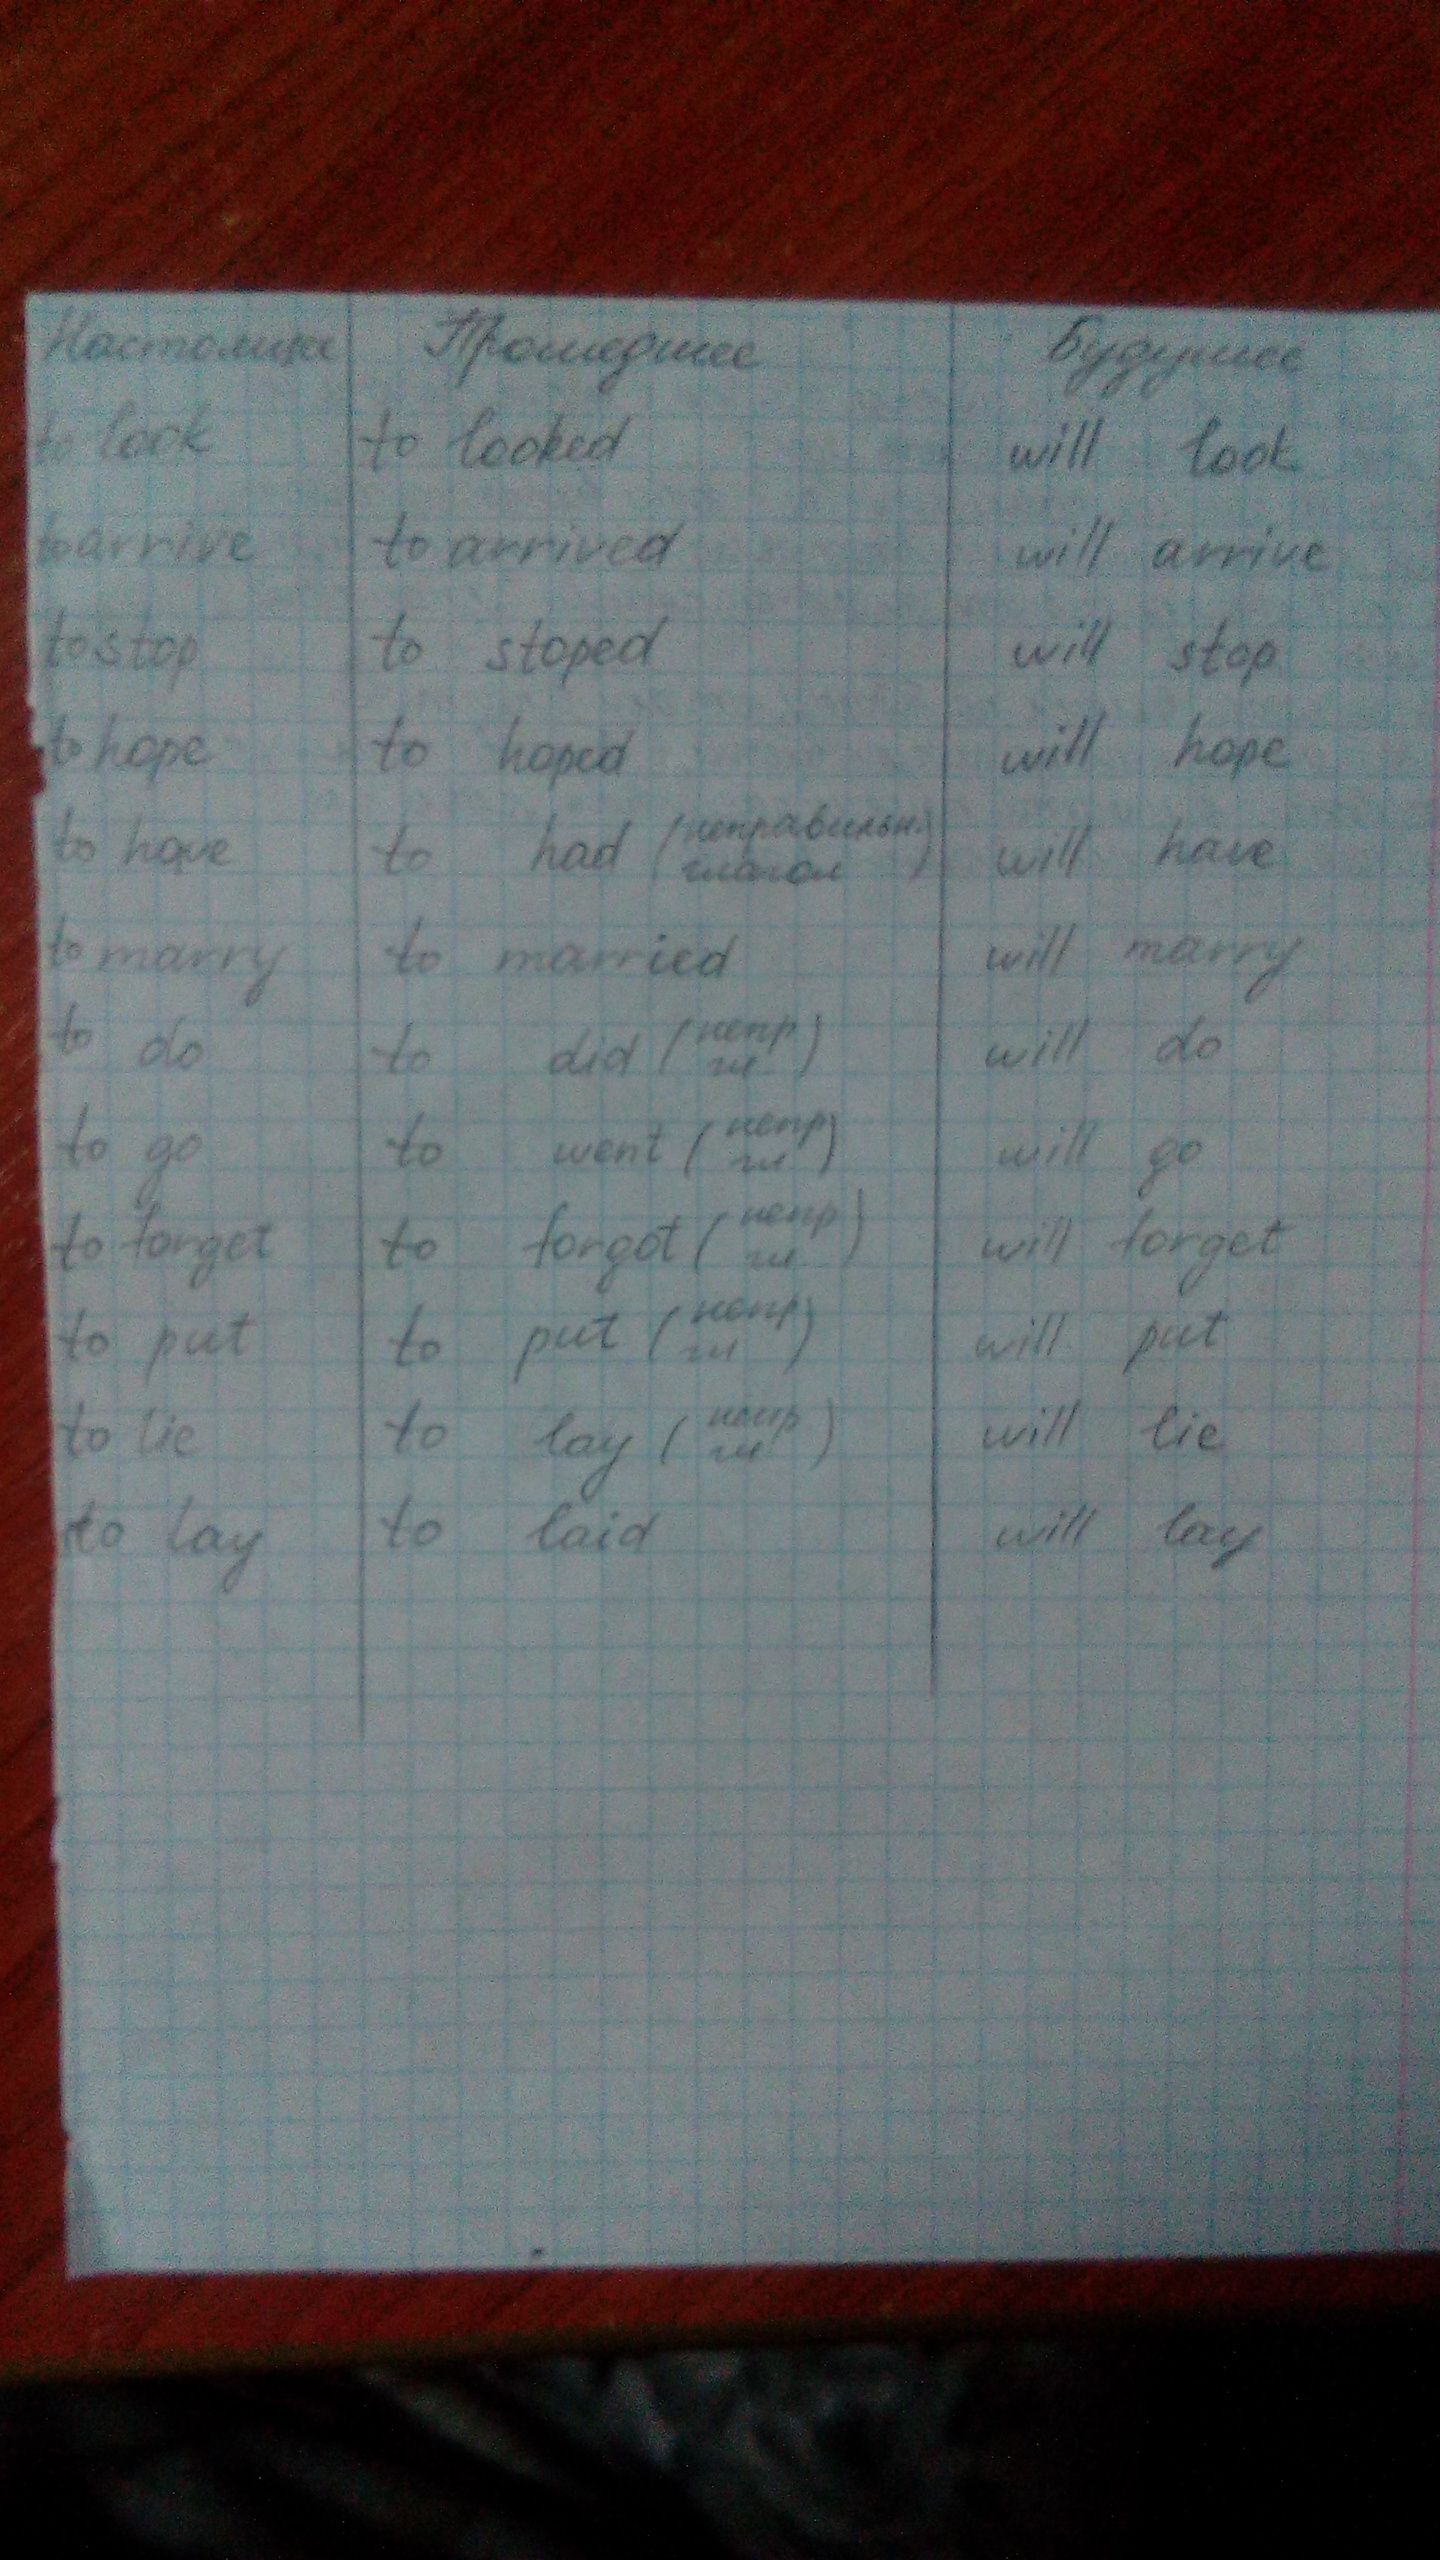 Настоящее Прошедшее Будущее
to look to looked will look
to arrive to arrived will arrive
to stop to stoped will stop
to hope to hoped will hope
to have to had (неправильн. глагол) will have
to marry to married will marry
to do to did (непр гл) will do
to go to went (непр гл) will go
to forget to forgot (непр гл) will forget
to put to put (непр гл) will put
to lie to lay (непр гл) will lie
to lay to laid will lay